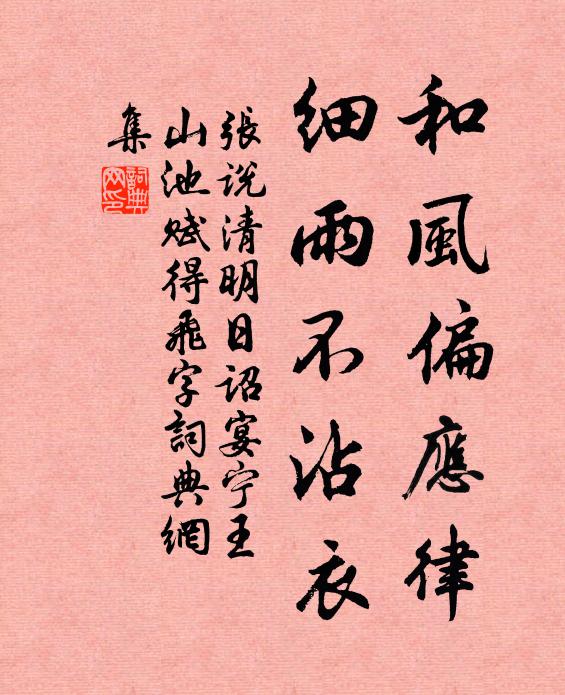 和風偏應律
細雨不沾衣
張說清明日詔宴宁王
山池賦得飛字詞典網
集
詞典
網印